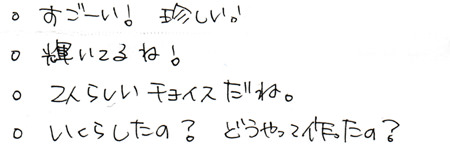 ○ すごーい! 珍しい!
○ 輝いてるね!
○ 2人らしいチョイスだね。
○ いくらしたの? どうやって作ったの?